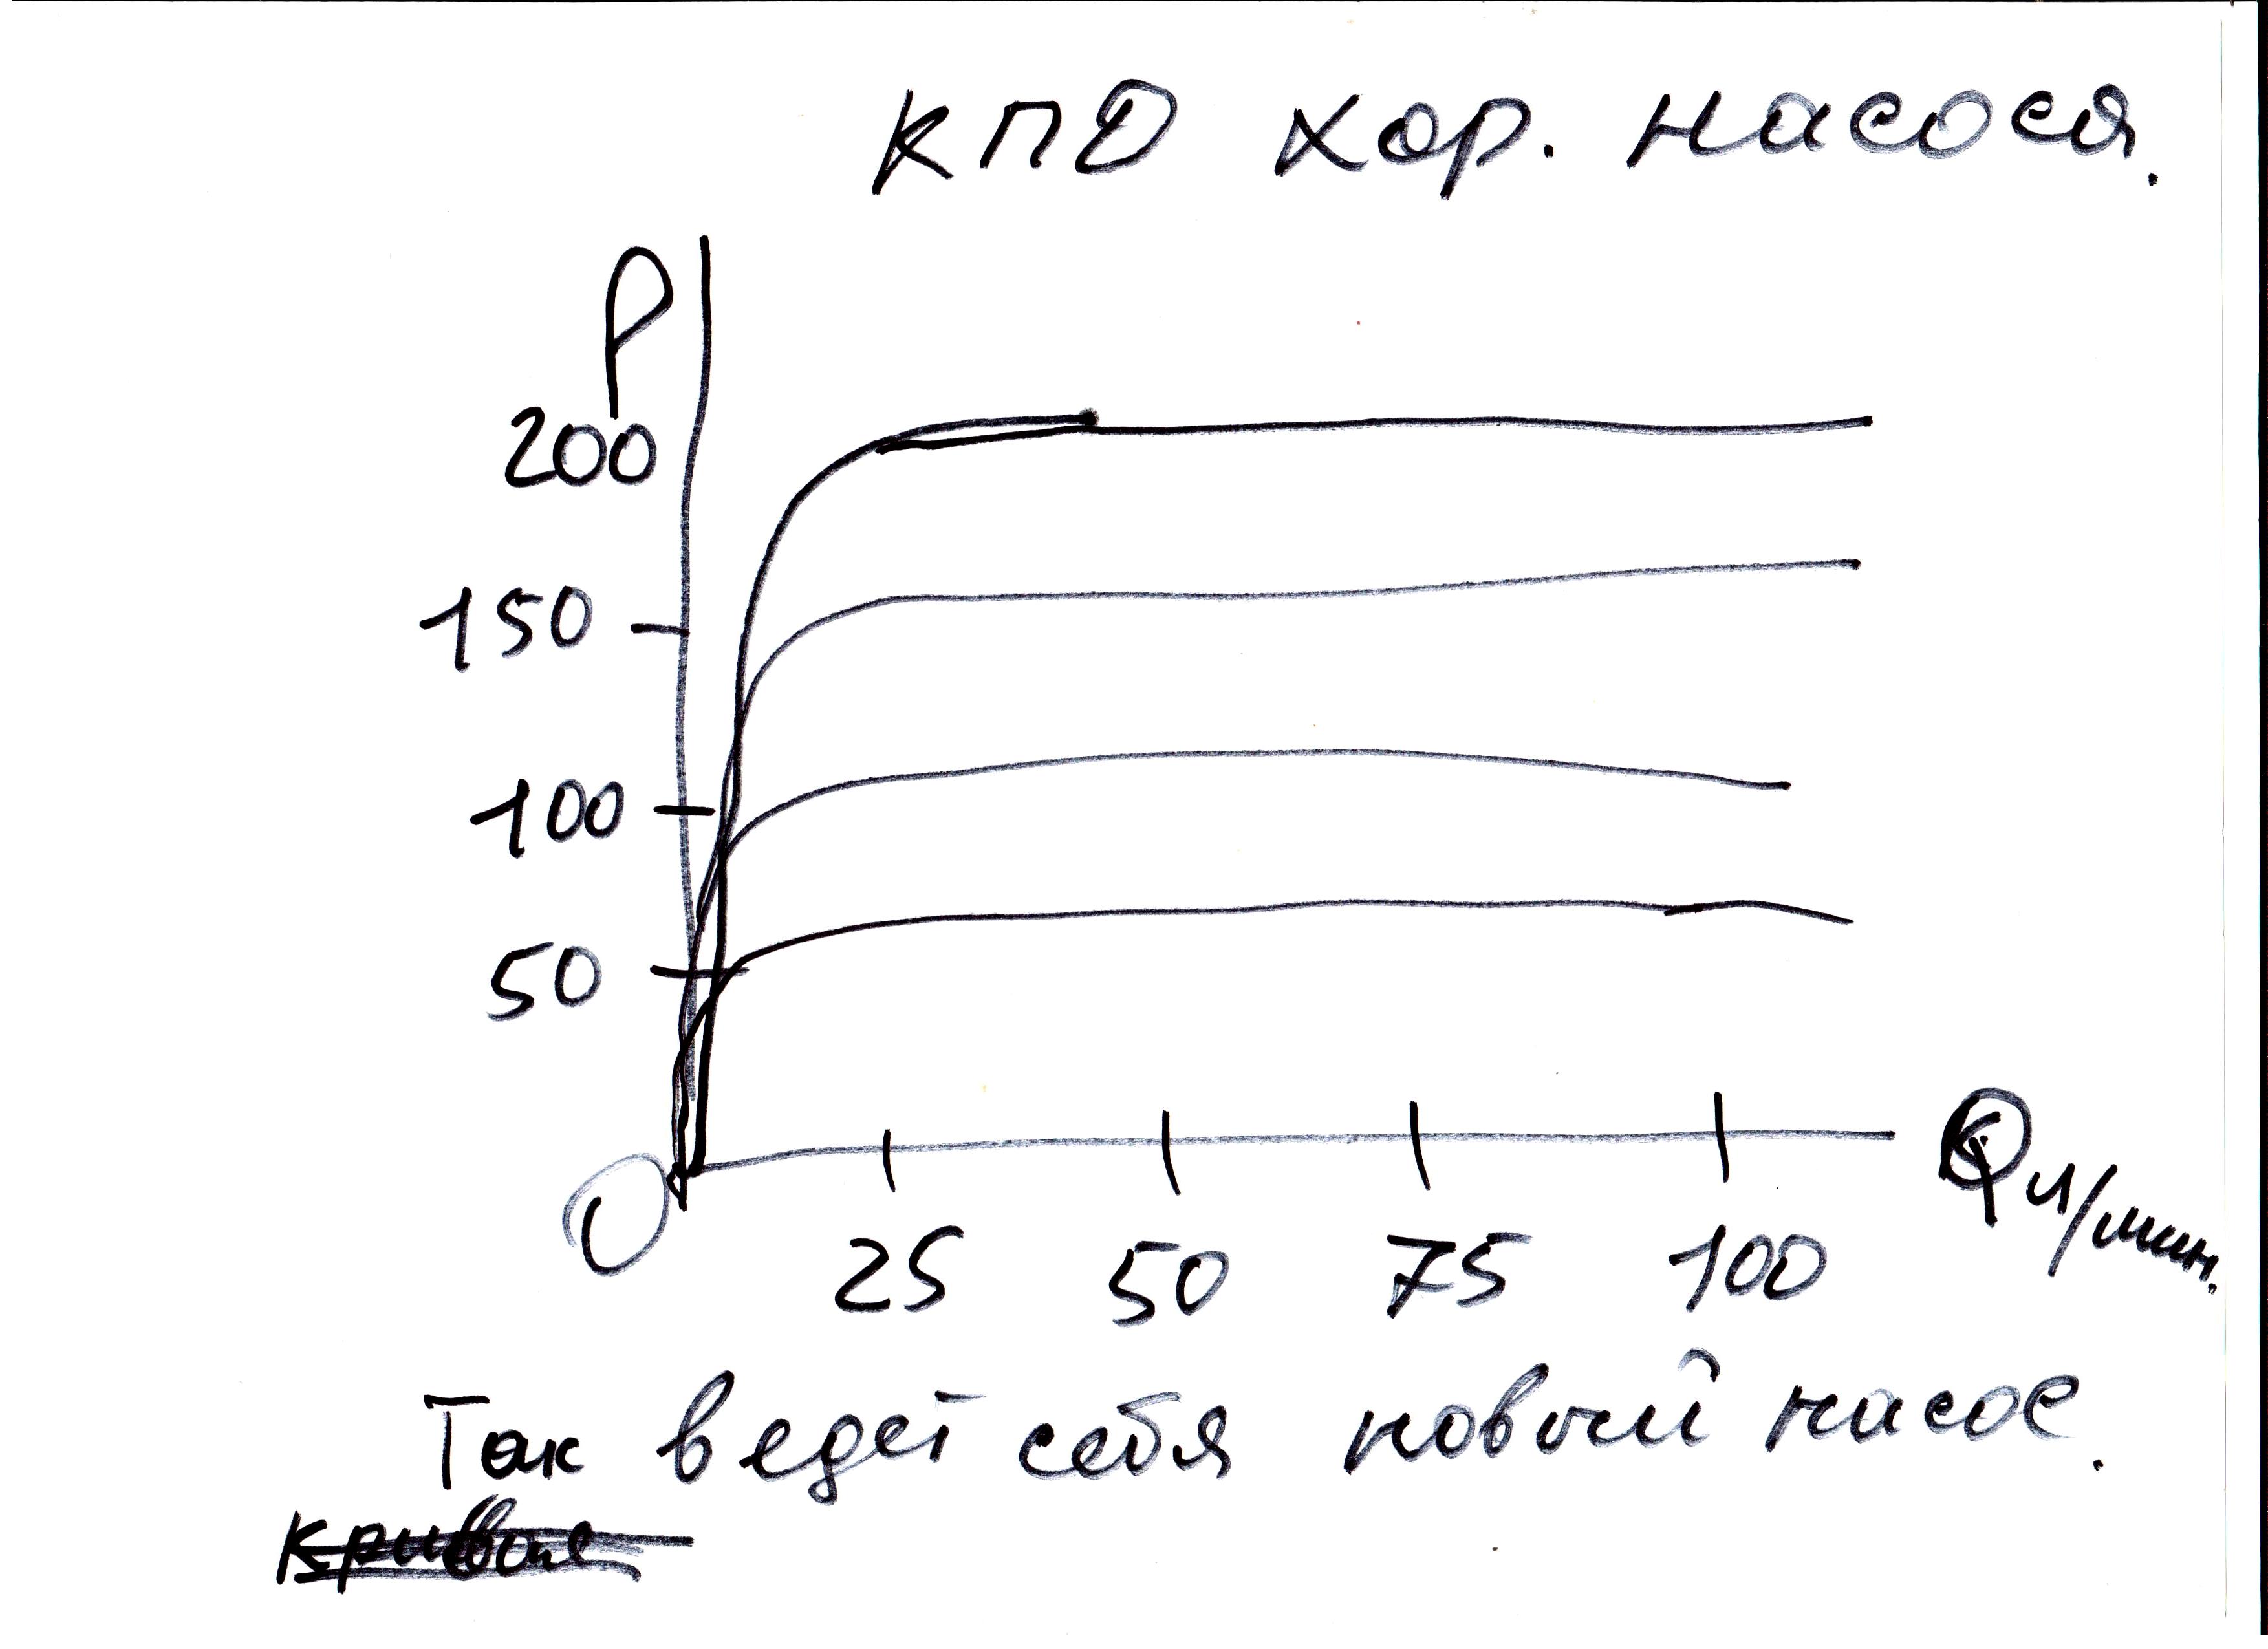 КПД хор. насоса.
P
200
150
100
50
0
25 50 75 100
Q л/мин.
Так ведет себя новый насос.